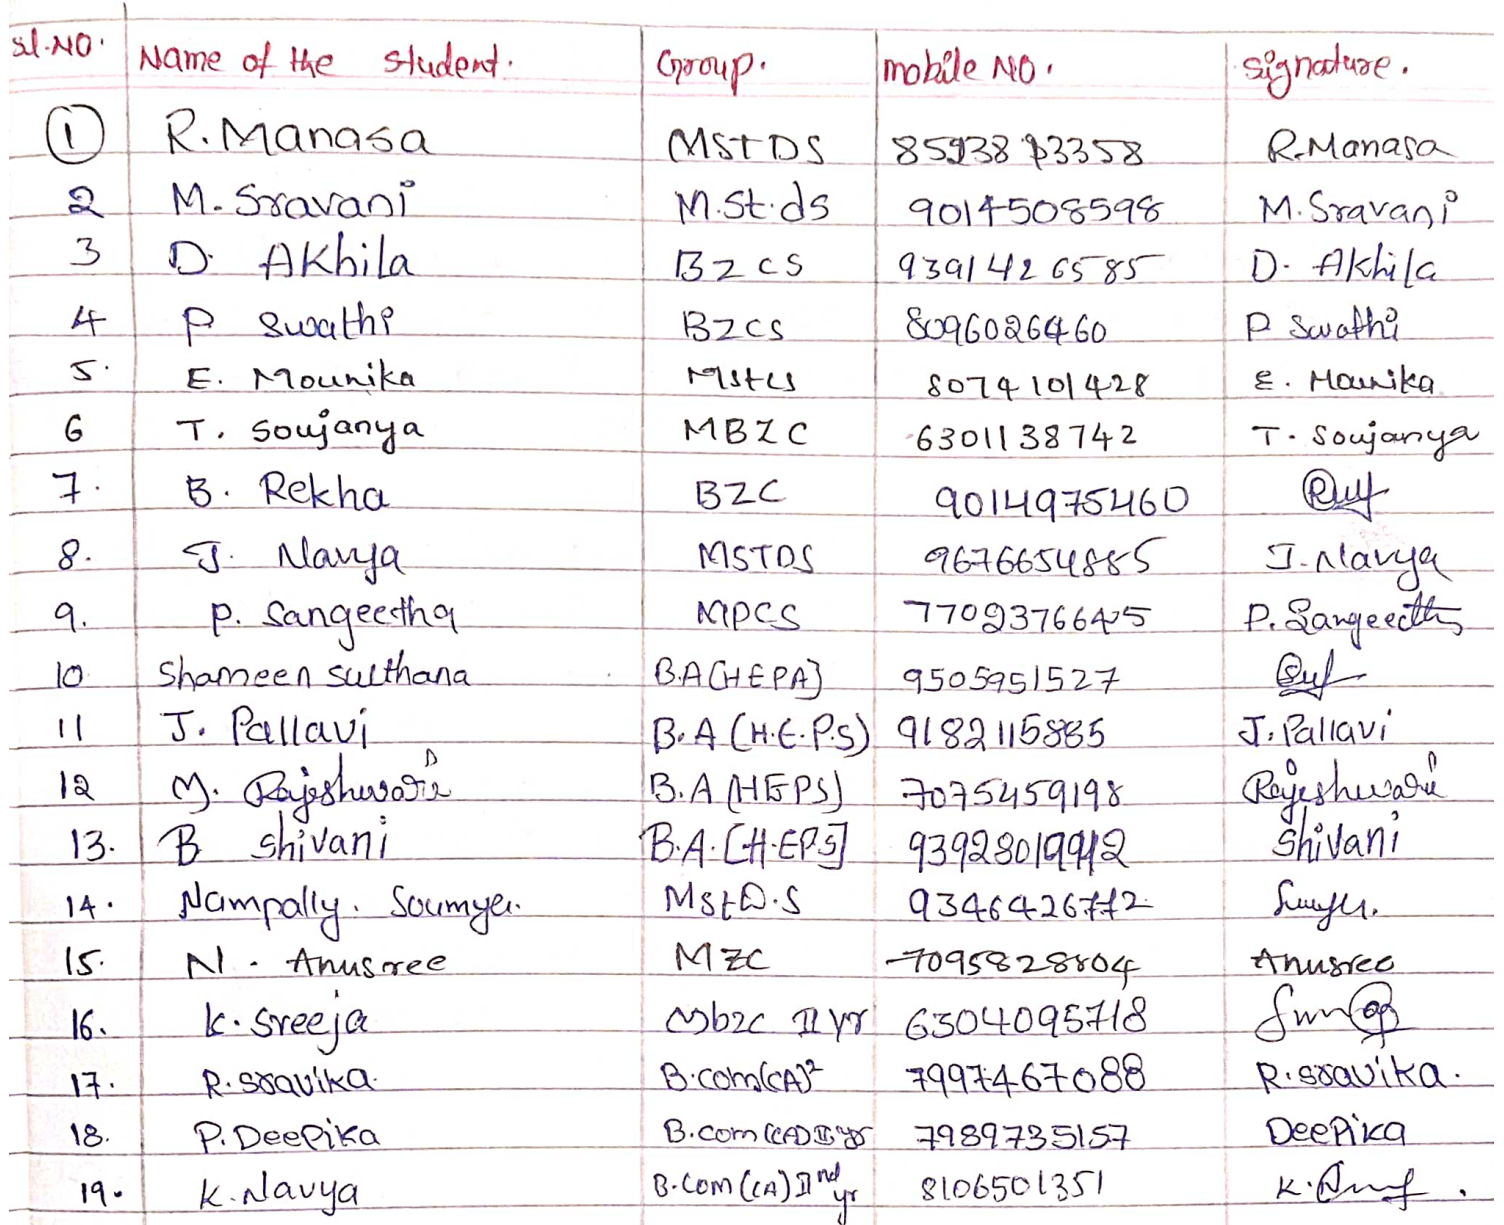 Sl.NO. Name of the student. Group. mobile NO. Signature.
1 R.Manasa MSTDS R.Manasa
2 M. Sravani M.St.ds 9014508598 M. Sravani
3 D. Akhila BZCS 9391426585 D. Akhila
4 P Swathi BZCS 8096026460 P Swathi
5. E. Mounika MStcs 8074101428 E. Mounika
6 T. Soujanya MBZC 6301138742 T. Soujanya
7. B. Rekha BZC 9014975460
8. J. Navya MSTDS 9676654885 J. Navya
9. P. Sangeetha MPCS P. Sangeetha
10 Shameen Sulthana B.A(HEPA] 9505951527
11 J. Pallavi B.A (H.E.P.S) 9182115885 J. Pallavi
12 M. Rajeshwari B.A (HEPS) 7075459198 Rajeshwari
13. B Shivani B.A.[H.EPS] Shivani
14. Nampally. Soumya. MstD.S 9346426772
15. N. Anusree MZC 7095828804 Anusree
16. K. Sreeja Mbzc II yr 6304095718
17. R. Sravika. B.com(CA)² 7997467088 R. Sravika.
18. P. DeePika B.com (CA) II yr 7989735157 DeePika
19. K. Navya B.Com (CA) II nd yr 8106501351 K.